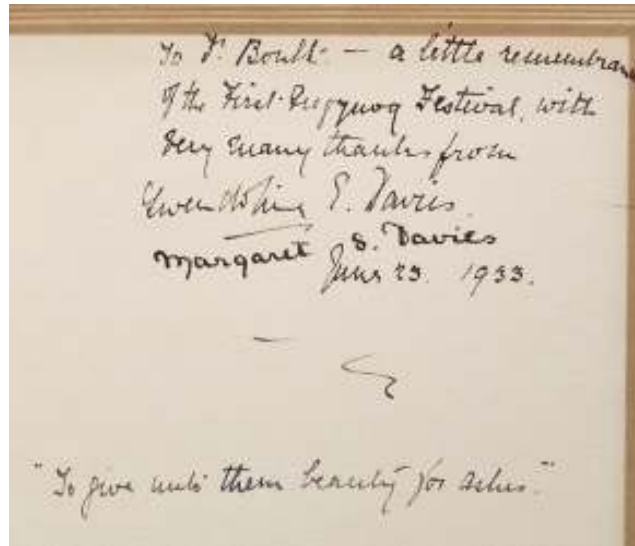 To Dr Boult — a little remembran
of the First Gregynog Festival, with
very many thanks from
Gwendoline E. Davies.
Margaret S. Davies
June 23. 1933.
"To give unto them beauty for ashes."